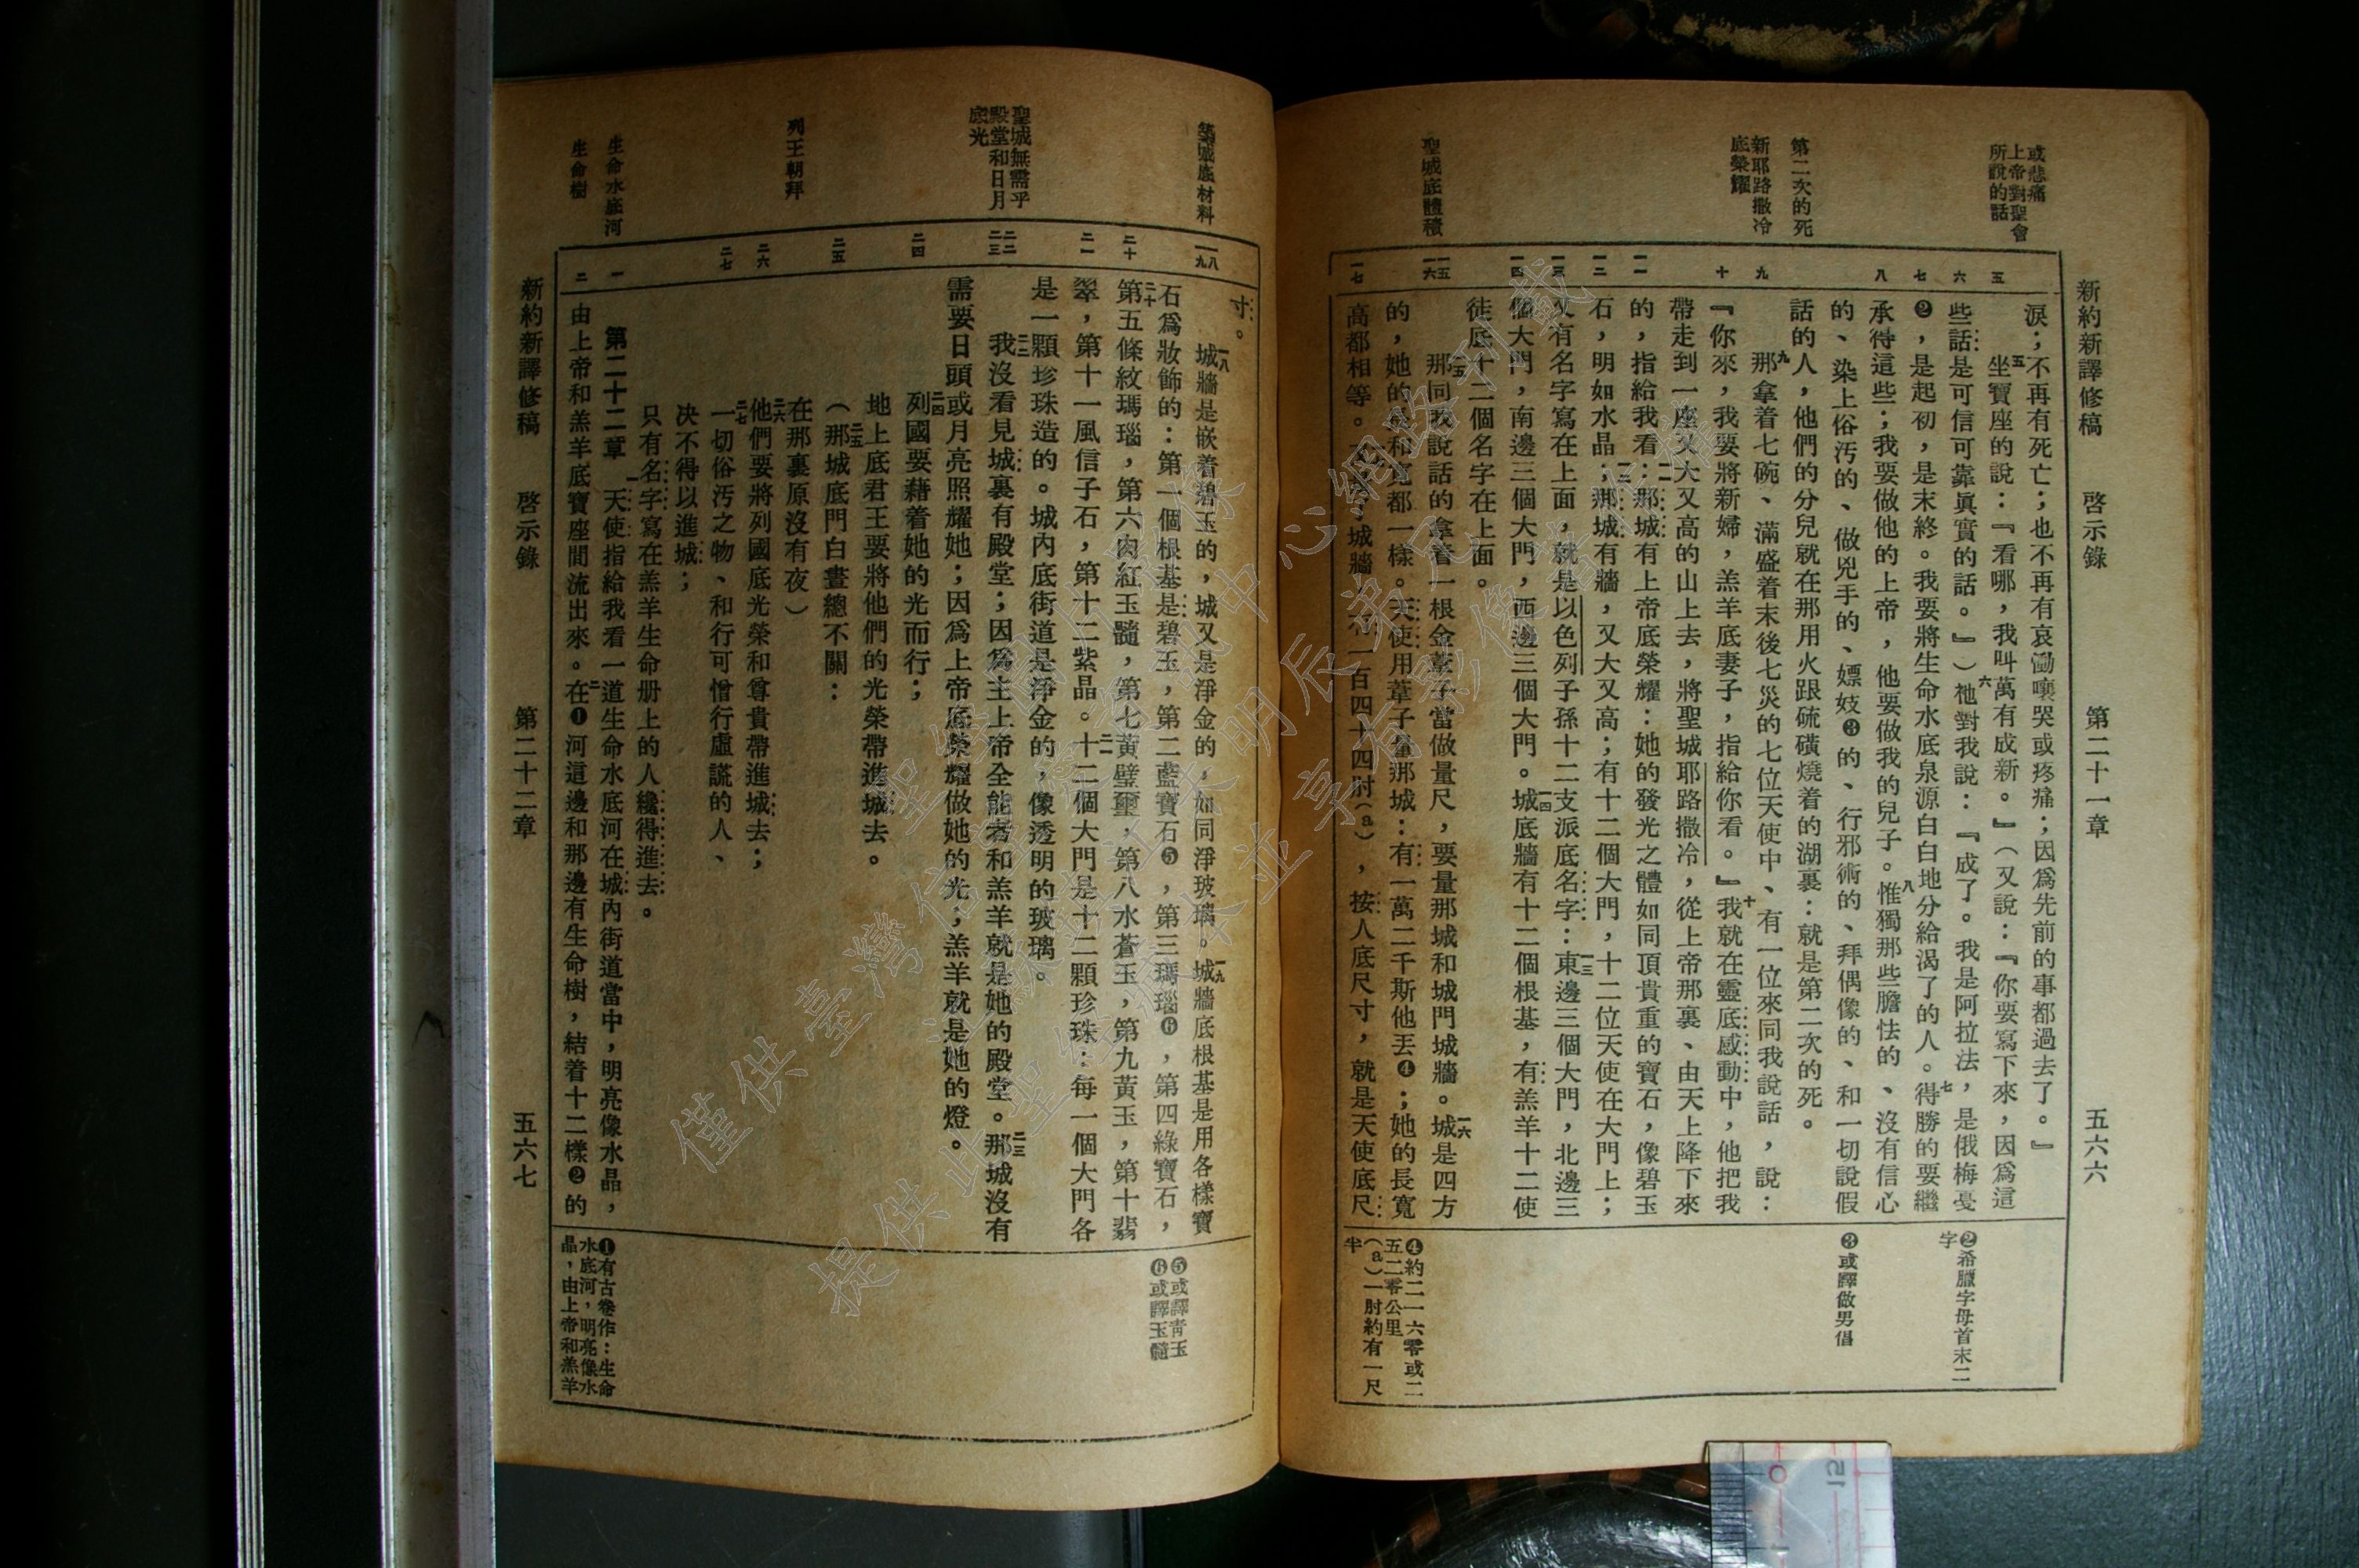 新約新譯修稿 啓示錄 第二十一章 五六六
或悲痛
上帝對聖會
所說的話
第二次的死
新耶路撒冷
底榮耀
聖城底體積
五
六
七
八
九
十
一一
一二
一三
一四
一五
一六
一七
淚；不再有死亡；也不再有哀慟嚷哭或疼痛；因爲先前的事都過去了。』
五坐寶座的說：『看哪，我叫萬有成新。』（又說：『你要寫下來，因爲這
些話是可信可靠眞實的話。』）六祂對我說：『成了。我是阿拉法，是俄梅戞
❷，是起初，是末終。我要將生命水底泉源白白地分給渴了的人。七得勝的要繼
承得這些；我要做他的上帝，他要做我的兒子。八惟獨那些膽怯的、沒有信心
的、染上俗汚的、做兇手的、嫖妓❸的、行邪術的、拜偶像的、和一切說假
話的人，他們的分兒就在那用火跟硫磺燒着的湖裏：就是第二次的死。
九那拿着七碗、滿盛着末後七災的七位天使中、有一位來同我說話，說：
『你來，我要將新婦，羔羊底妻子，指給你看。』十我就在靈底感動中，他把我
帶走到一座又大又高的山上去，將聖城耶路撒冷，從上帝那裏、由天上降下來
的，指給我看；一一那城有上帝底榮耀：她的發光之體如同頂貴重的寶石，像碧玉
石，明如水晶；一二那城有牆，又大又高；有十二個大門，十二位天使在大門上；
又有名字寫在上面，就是以色列子孫十二支派底名字：一三東邊三個大門，北邊三
個大門，南邊三個大門，西邊三個大門。一四城底牆有十二個根基，有羔羊十二使
徒底十二個名字在上面。
一五那同我說話的拿着一根金葦子當做量尺，要量那城和城門城牆。一六城是四方
的，她的長和寬都一樣。天使用葦子量那城：有一萬二千斯他丟❹；她的長寬
高都相等。城牆一百四十四肘（a），按人底尺寸，就是天使底尺
❷希臘字母首末二
字
❸或譯做男倡
❹約二一六零或二
五二零公里
（a）一肘約有一尺
半
築城底材料
聖城無需乎
殿堂和日月
底光
列王朝拜
生命水底河
生命樹
一八
一九
二十
二一
二二
二三
二四
二五
二六
二七
一
二
寸。
一八城牆是嵌着碧玉的，城又是淨金的，如同淨玻璃。一九城牆底根基是用各樣寶
石爲妝飾的：第一個根基是碧玉，第二藍寶石❺，第三瑪瑙❻，第四綠寶石，
二十第五條紋瑪瑙，第六肉紅玉髓，第七黃璧璽，第八水蒼玉，第九黃玉，第十翡
翠，第十一風信子石，第十二紫晶。二一十二個大門是十二顆珍珠：每一個大門各
是一顆珍珠造的。城內底街道是淨金的，像透明的玻璃。
二二我沒看見城裏有殿堂；因爲主上帝全能者和羔羊就是她的殿堂。二三那城沒有
需要日頭或月亮照耀她；因爲上帝底榮耀做她的光；羔羊就是她的燈。
二四列國要藉着她的光而行；
地上底君王要將他們的光榮帶進城去。
（二五那城底門白晝總不關：
在那裏原沒有夜）
二六他們要將列國底光榮和尊貴帶進城去；
二七一切俗汚之物、和行可憎行虛謊的人、
决不得以進城；
只有名字寫在羔羊生命册上的人纔得進去。
第二十二章 一天使指給我看一道生命水底河在城內街道當中，明亮像水晶，
由上帝和羔羊底寶座間流出來。二在❶河這邊和那邊有生命樹，結着十二樣❷的
❺或譯靑玉
❻或譯玉髓
❶有古卷作：生命
水底河，明亮像水
晶，由上帝和羔羊
新約新譯修稿 啓示錄 第二十二章 五六七